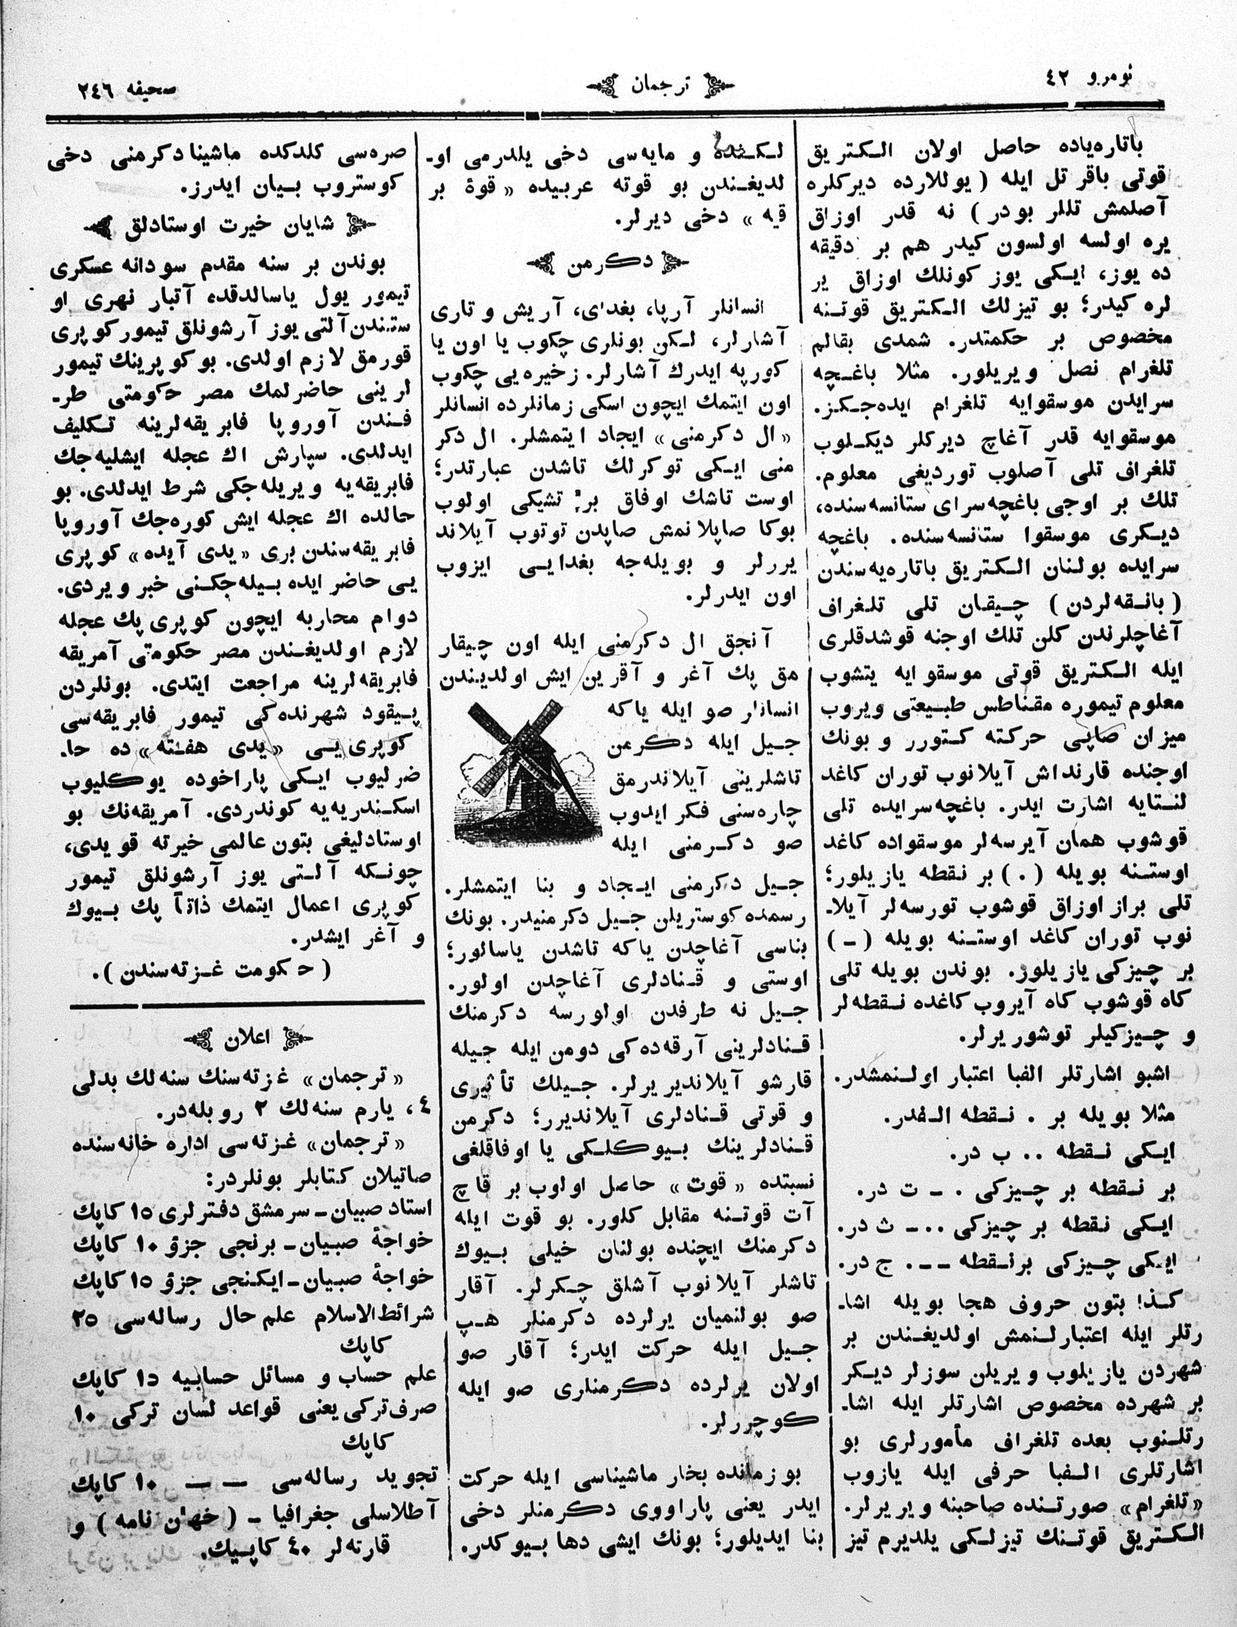 نومرو ٤٢
ترجمان
صحيفه ٢٤٦
باتاره‌ياده حاصل اولان الـكتريق
قوتى باقر تل ايله ( يوللارده ديركلره
آصلمش تللر بودر ) نه قدر اوزاق
يره اولسه اولسون كيدر هم بر دقيقه
ده يوز، ايـكى يوز كونلك اوزاق ير
لره كيدر؛ بو تيزلك الـكتريق قوتـنه
مخصوص بر حكمتدر. شمدى بقالم
تلغرام نصل ويريلور. مثلا باغـچه
سرايدن موسقوايه تلغرام ايده‌جـكز.
موسقوايه قدر آغاچ ديركلر ديكـلوب
تلغراف تلى آصلوب تورديغى معلوم.
تلك بر اوجى باغچه‌سراى ستانسه‌سنده،
ديـكرى موسقوا ستانسه‌سنده. باغچه
سرايده بولنان الـكتريق باتاره‌يه‌سندن
( بانـقه‌لردن ) چـيقان تلى تلـغراف
آغاچلرندن كلن تلك اوجنه قوشدقلرى
ايله الـكتريق قوتى موسقوايه يتشوب
معلوم تيموره مقناطس طبـيعتى ويروب
ميزان صاپى حركته كـتورر و بونك
اوجنده قارنداش آيلانوب توران كاغد
لـنتايه اشارت ايدر. باغچه‌سرايده تلى
قوشوب همان آيرسه‌لر موسقواده كاغد
اوستـنه بويله ( . ) بر نـقطه يازيلور؛
تلى براز اوزاق قوشوب تورسه‌لر آيلا‌ـ
نوب توران كاغد اوستـنه بويله ( ـ )
بر چيزكى يازيلور. بوندن بويله تلى
كاه قوشوب كاه آيروب كاغده نـقطه‌لر
و چـيزكيلر توشوريرلر.
اشبو اشارتلر الفبا اعتبار اولـنمشدر.
مثلا بويله بر . نـقطه الـفدر.
ايـكى نـقطه . . ب در.
بر نـقطه بر چـيزكى . ـ ت در.
ايـكى نـقطه بر چيزكى . . ـ ث در.
ايـكى چـيزكى برنـقطه ـ ـ . ج در.
كـذا بتون حروف هجا بويله اشا‌ـ
رتلر ايله اعتبارلـنمش اولديغـندن بر
شهردن يازيلوب ويريلن سوزلر ديـكر
بر شهرده مخصوص اشارتلر ايله اشا‌ـ
رتلـنوب بعده تلغراف مأمورلرى بو
اشارتلرى الـفبا حرفى ايله يازوب
«تلغرام» صورتـنده صاحبنه ويريرلر.
الـكتريق قوتـنك تيزلـكى يلديرم تيز
لـكـنده و مايه‌سى دخى يلدرمى او‌ـ
لديغـندن بو قوته عربيده « قوۀ بر
قيه » دخى ديرلر.
دكرمن
انسانلر آرپا، بغداى، آريش و تارى
آشارلر، لـكن بونلرى چكوب يا اون يا
كورپه ايدرك آشارلر. زخيره‌يى چكوب
اون ايتمك ايچون اسكى زمانلرده انسانلر
«ال دكرمنى» ايجاد ايتمشلر. ال دكر
منى ايـكى توكرلك تاشدن عبارتدر؛
اوست تاشك اوفاق بر تشيكى اولوب
بوكا صاپلانمش صاپدن توتوب آيلاند
يررلر و بويله‌جه بغدايـى ايزوب
اون ايدرلر.
آنجق ال دكرمنى ايله اون چـيقار
مق پك آغر و آقرين ايش اولديـندن
انسانلر صو ايله ياكه
جـيل ايله دكرمن
تاشلرينى آيلاندرمق
چاره‌سنى فـكر ايدوب
صو دكـرمنى ايله
جـيل دكرمنى ايـجاد و بنا ايتمشلر.
رسمده كوستريلن جـيل دكرمنيدر. بونك
بناسى آغاچدن ياكه تاشدن ياسالور؛
اوستى و قـنادلرى آغاچدن اولور.
جـيل نه طرفدن اولورسه دكرمنك
قـنادلرينى آرقه‌ده‌كى دومن ايله جـيله
قارشو آيلانديريرلر. جـيلك تأثيرى
و قوتى قـنادلرى آيلانديرر؛ دكرمن
قـنادلرينك بـيوكلـكى يا اوفاقلغى
نسبتده « قوت » حاصل اولوب بر قاچ
آت قوتـنه مقابل كلور. بو قوت ايله
دكرمنك ايچنده بولنان خيلى بـيوك
تاشلر آيلانوب آشلق چـكرلر. آقار
صو بولنميان يرلرده دكرمنلر هـپ
جـيل ايله حركت ايدر؛ آقار صو
اولان يرلرده دكرمنلرى صو ايله
كوچررلر.
بو زمانده بخار ماشيناسى ايله حركت
ايدر يعنى پاراووى دكرمنلر دخى
بنا ايديلور؛ بونك ايشى دها بـيوكدر.
صره‌سى كلدكده ماشينا دكرمنى دخى
كوستروب بـيان ايدرز.
شايان خيرت اوستادلق
بوندن بر سنه مقدم سودانه عسكرى
تيمور يول ياسالدقده آتبار نهرى او
ستـندن آلتى يوز آرشونلق تيموركوپرى
قورمق لازم اولدى. بوكوپرينك تيمور
لرينى حاضرلمك مصر حكومتى طر‌ـ
فـندن آوروپا فابريقه‌لرينه تـكليف
ايدلدى. سپارش اك عجله ايشليه‌جك
فابريقه‌يه ويريله‌جكى شرط ايدلدى. بو
حالده اك عجله ايش كوره‌جك آوروپا
فابريقه‌سندن برى « يدى آيده » كوپرى
يى حاضر ايده بـيله‌جكنى خبر ويردى.
دوام محاربه ايچون كوپرى پك عجله
لازم اولديغـندن مصر حكومتى آمريقه
فابريقه‌لرينه مراجعت ايتدى. بونلردن
پـيقود شهرنده‌كى تيمور فابريقه‌سى
كوپرى‌يـى «يدى هفته» ده حا‌ـ
ضرليوب ايـكى پاراخوده يوكليوب
اسكـندريه‌يه كوندردى. آمريقه‌نك بو
اوستادليغى بتون عالمى خيرته قويدى،
چونـكه آلـتى يوز آرشونلق تيمور
كوپرى اعمال ايتمك ذاتاً پك بـيوك
و آغر ايشدر.
( حكومت غـزته‌سندن ).
اعلان
«ترجمان» غزته‌سنك سنه‌لك بدلى
٤، يارم سنه‌لك ٢ روبله‌در.
«ترجمان» غـزته‌سى اداره خانه‌سنده
صاتيلان كتابلر بونلردر:
استاد صبيان ـ سرمشق دفترلرى ١٥ كاپك
خواجۀ صبـيان ـ برنجى جزؤ ١٠ كاپك
خواجۀ صبـيان ـ ايكنجى جزؤ ١٥ كاپك
شرائط‌الاسلام علم حال رساله‌سى ٢٥
كاپك
علم حساب و مسائل حسابيه ١٥ كاپك
صرف تركى يعنى قواعد لسان تركى ١٠
كاپك
تجويد رساله‌سى — — ١٠ كاپك
آطلاسلى جغرافيا ـ ( خهان نامه ) و
قارته‌لر ٤٠ كاپـيك.